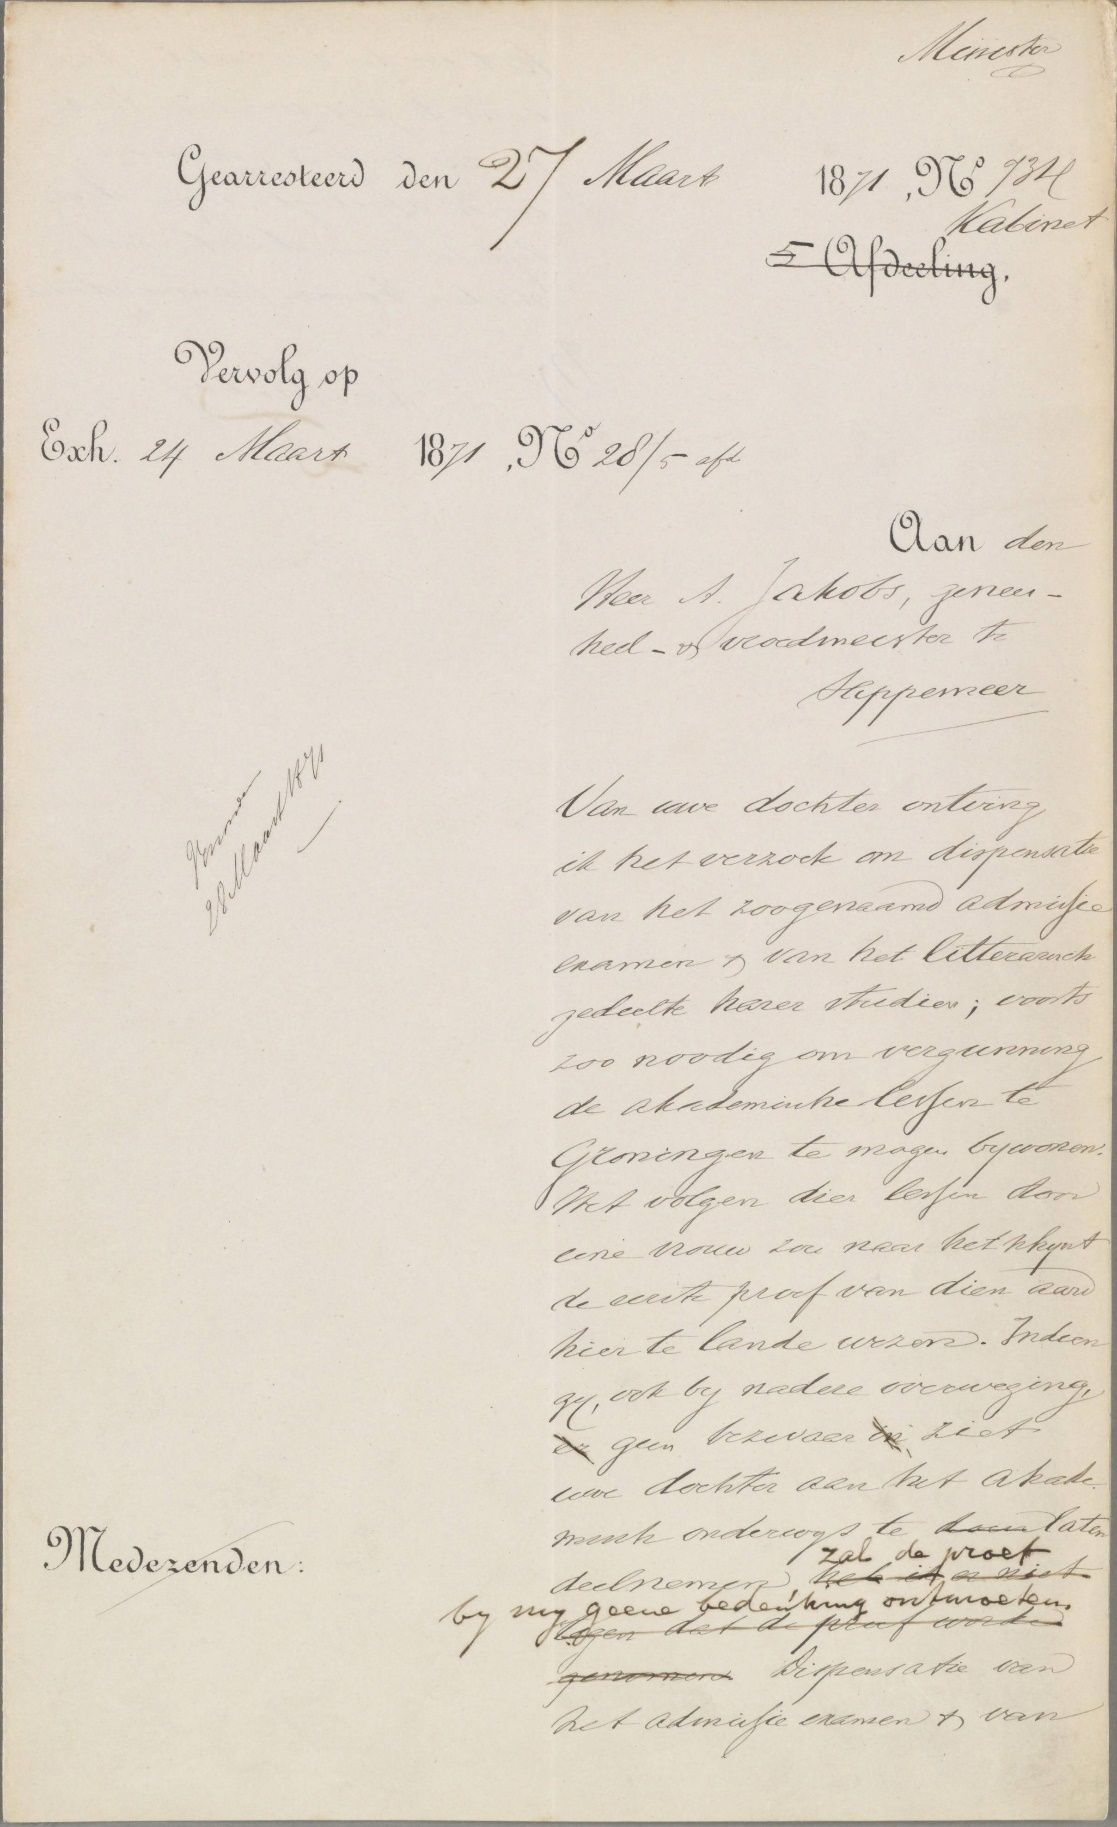 Minister
Gearresteerd den 27 Maart 1871, No 73 H
Kabinet
5 Afdeeling.
Vervolg op
Exh. 24 Maart 1871, No 28/5 afd
Aan den
Heer A. Jakobs, genees-
heel- & vroedmeester te
Sappemeer
28 Maart 1871
Van uwe dochter ontving
ik het verzoek om dispensatie
van het zoogenaamd admissie
examen & van het litterarisch
gedeelte harer studien; voorts
zoo noodig om vergunning
de akademische lessen te
Groningen te mogen bywonen.
Het volgen dier lessen door
eene vrouw zou naar het schynt
de eerste proef van dien aard
hier te lande wezen. Indien
gy, ook by nadere overweging,
er geen bezwaar in ziet
uwe dochter aan het akade-
misch onderwys te doen laten
zal de proef
deelnemen, heb ik er niet
by my geene bedenking ontmoeten.
tegen dat de proef worde
genomen. Dispensatie van
het admissie examen & van
Medezenden: